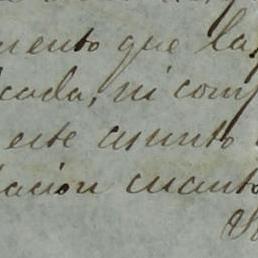 mento que la
cada, ni com
este asunto
lacion cuanto